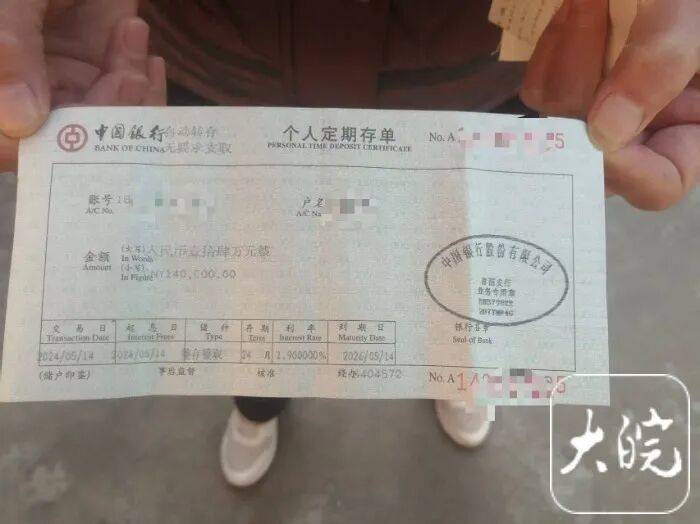 中国银行 自动转存
BANK OF CHINA 无赎承支取
个人定期存单
PERSONAL TIME DEPOSIT CERTIFICATE
No. A 1 5
账号 18
A/C No.
户名
A/C Na
金额
Amount
(大写) 人民币壹拾肆万元整
In Words
(小写)
In Figure 140,000.00
中国银行股份有限公司
业务专用章
银行签章
Seal of Bank
交易日 起息日 储种 存期 利率 到期日
Transaction Date Interest From Type Term Interest Rate Maturity Date
2024/05/14 2024/05/14 整存整取 24 月 1.900000% 2026/05/14
(储户印鉴) 事后监督 核准 经办 6404572
No. A 14 5
大皖